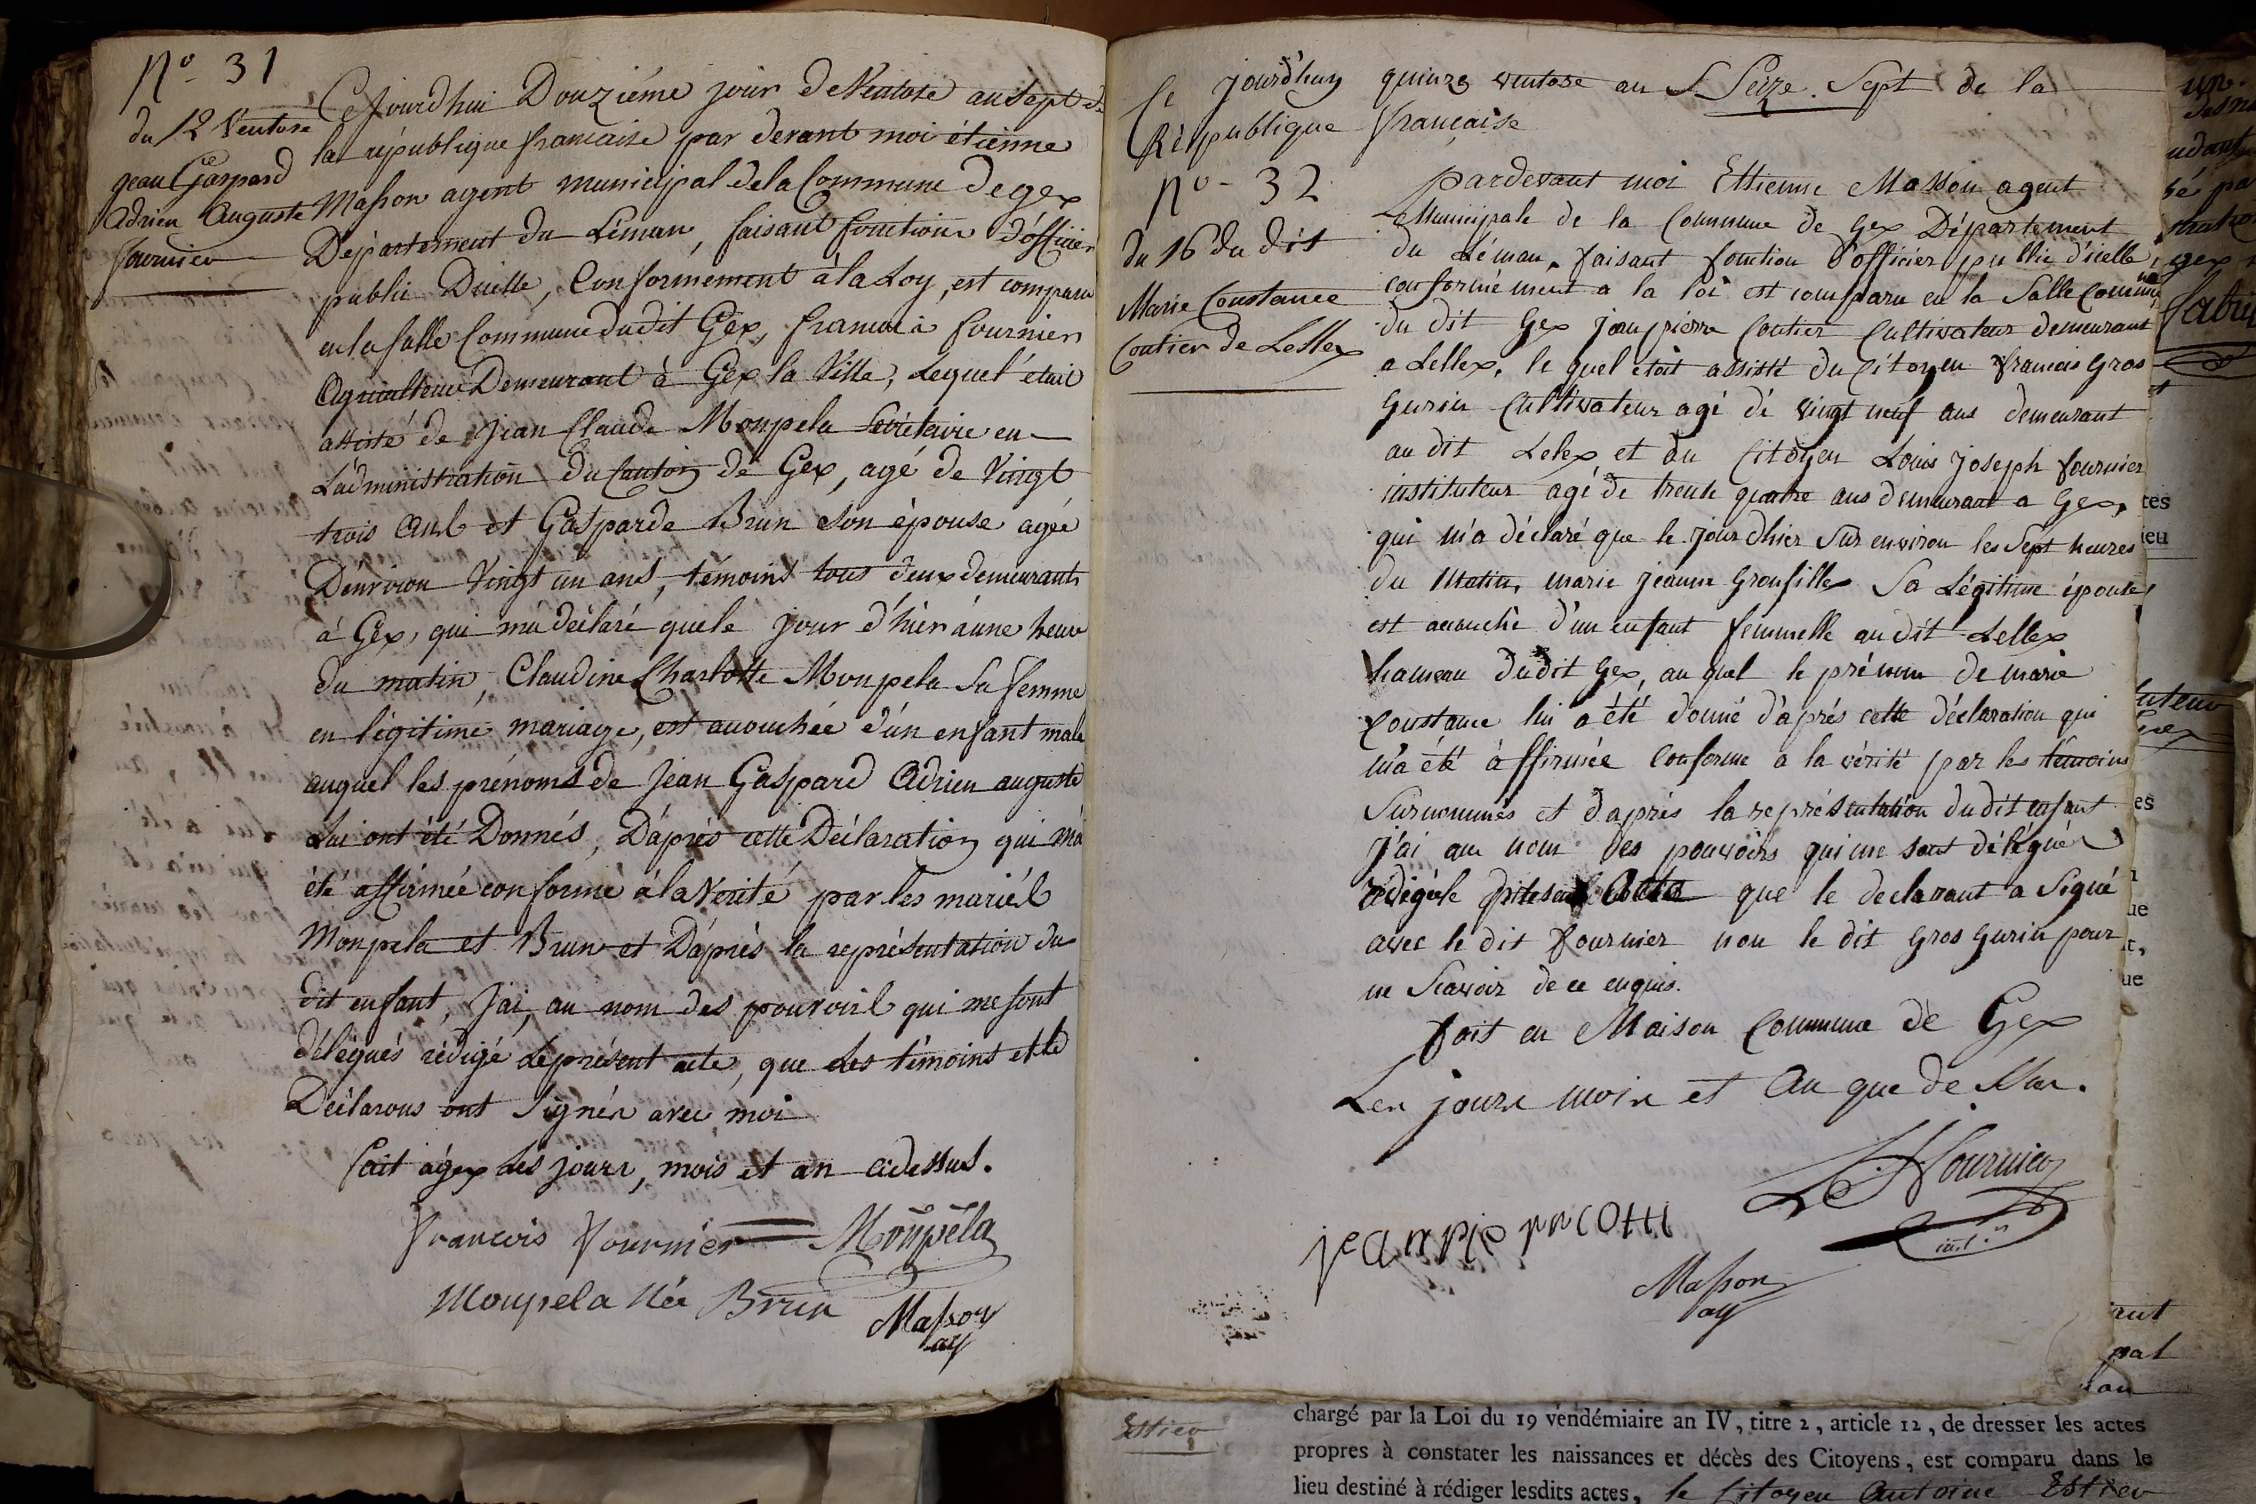 N.° 31
du 12 Ventose
jean Gaspard
adrien auguste
fournier
Cejourdhui Douziéme jour de Ventose an Sept de
la république francaise par devant moi étienne
Masson agent municipal de la Commune de gex
Département du Léman, faisant fonctions d'officier
public Dicelle, Conformément à la Loy, est comparu
en la salle Commune dudit Gex, francois fournier
Agriculteur Demeurant à Gex la Ville, Lequel étoit
assisté de Jean Claude Monpela Secrétaire en
L'administration du Canton de Gex, agé de Vingt
trois ans et Gasparde Brun son épouse agée
Denviron Vingt un ans, témoins tous deux demeurants
à Gex, qui ma déclaré que le jour d'hier à une heure
du matin, Claudine Charlotte Monpela sa femme
en légitime mariage, est accouchée d'un enfant male
auquel les prénoms de Jean Gaspard Adrien auguste
Lui ont été Donnés, D'après cette Déclaration qui m'a
été affirmée conforme à la Vérité par les mariés
Monpela et Brun et D'après la représentation du
dit enfant, J'ai, au nom des pouvoirs qui me sont
délégués rédigé Le présent acte, que Les témoins et le
Déclarans ont signés avec moi
fait à gex Les jours, mois et an cidessus.
francois fournier Monpela
Monpela née Brun Masson
ag
Ce jourd'huy quinze ventose an Seize Sept de la
République française
N.° 32
du 16 du dit
Marie Constance
Coutier de Lellex
pardevant moi Ettienne Masson agent
Municipale de la Commune de Gex Département
du Léman, faisant fonction d'officier public d'icelle,
conformément a la loi est comparu en la Salle Commune
du dit Gex jean pierre Coutier Cultivateur demeurant
a Lellex, le quel etoit assisté du Citoyen francois Gros
Gurin Cultivateur agé de vingt neuf ans demeurant
au dit Lelex et du Citoyen Louis Joseph fournier
instituteur agé de trente quatre ans demeurant a Gex,
qui m'a déclaré que le jour dhier sur environ les Sept heures
du Matin, marie jeanne Grosfillex Sa Légitime épouse,
est accouchée d'un enfant femmelle au dit Lellex
hameau du dit Gex, au quel le prénom de marie
Constance lui a été donné d'après cette déclaration qui
m'a été affirmée conforme a la vérité par les témoins
Surnommés et d'après la représentation du dit enfant
J'ai au nom des pouvoirs qui me sont délégués
rédigé le présent acte que le declarant a Signé
avec le dit fournier non le dit Gros Gurin pour
ne Scavoir de ce enquis.
fait en Maison Commune de Gex
Les jours mois et an que de Sur.
L. J. fournier
inst.
jean pierre cotti
Masson
ag
Estier
chargé par la Loi du 19 vendémiaire an IV, titre 2, article 12, de dresser les actes
propres à constater les naissances et décès des Citoyens, est comparu dans le
lieu destiné à rédiger lesdits actes, le Citoyen Antoine Estier